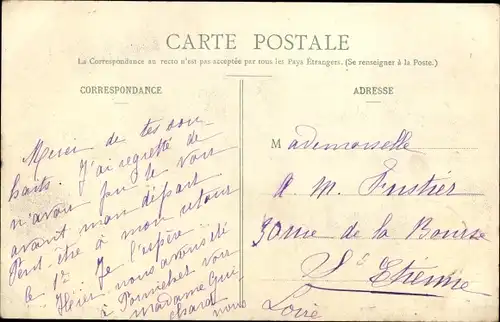 CARTE POSTALE
La Correspondance au recto n'est pas acceptée par tous les Pays Étrangers. (Se renseigner à la Poste.)
CORRESPONDANCE
ADRESSE
Merci de tes sou-
haits. J'ai regretté de
n'avoir pu le voir
avant mon départ
Peut-être à mon retour
le 12 Je l'espère
Hier nous avons été
à Pornichet voir
Madame Gui-
chard nous
Mademoiselle
A. M. Fustier
30 rue de la Bourse
St Etienne
Loire